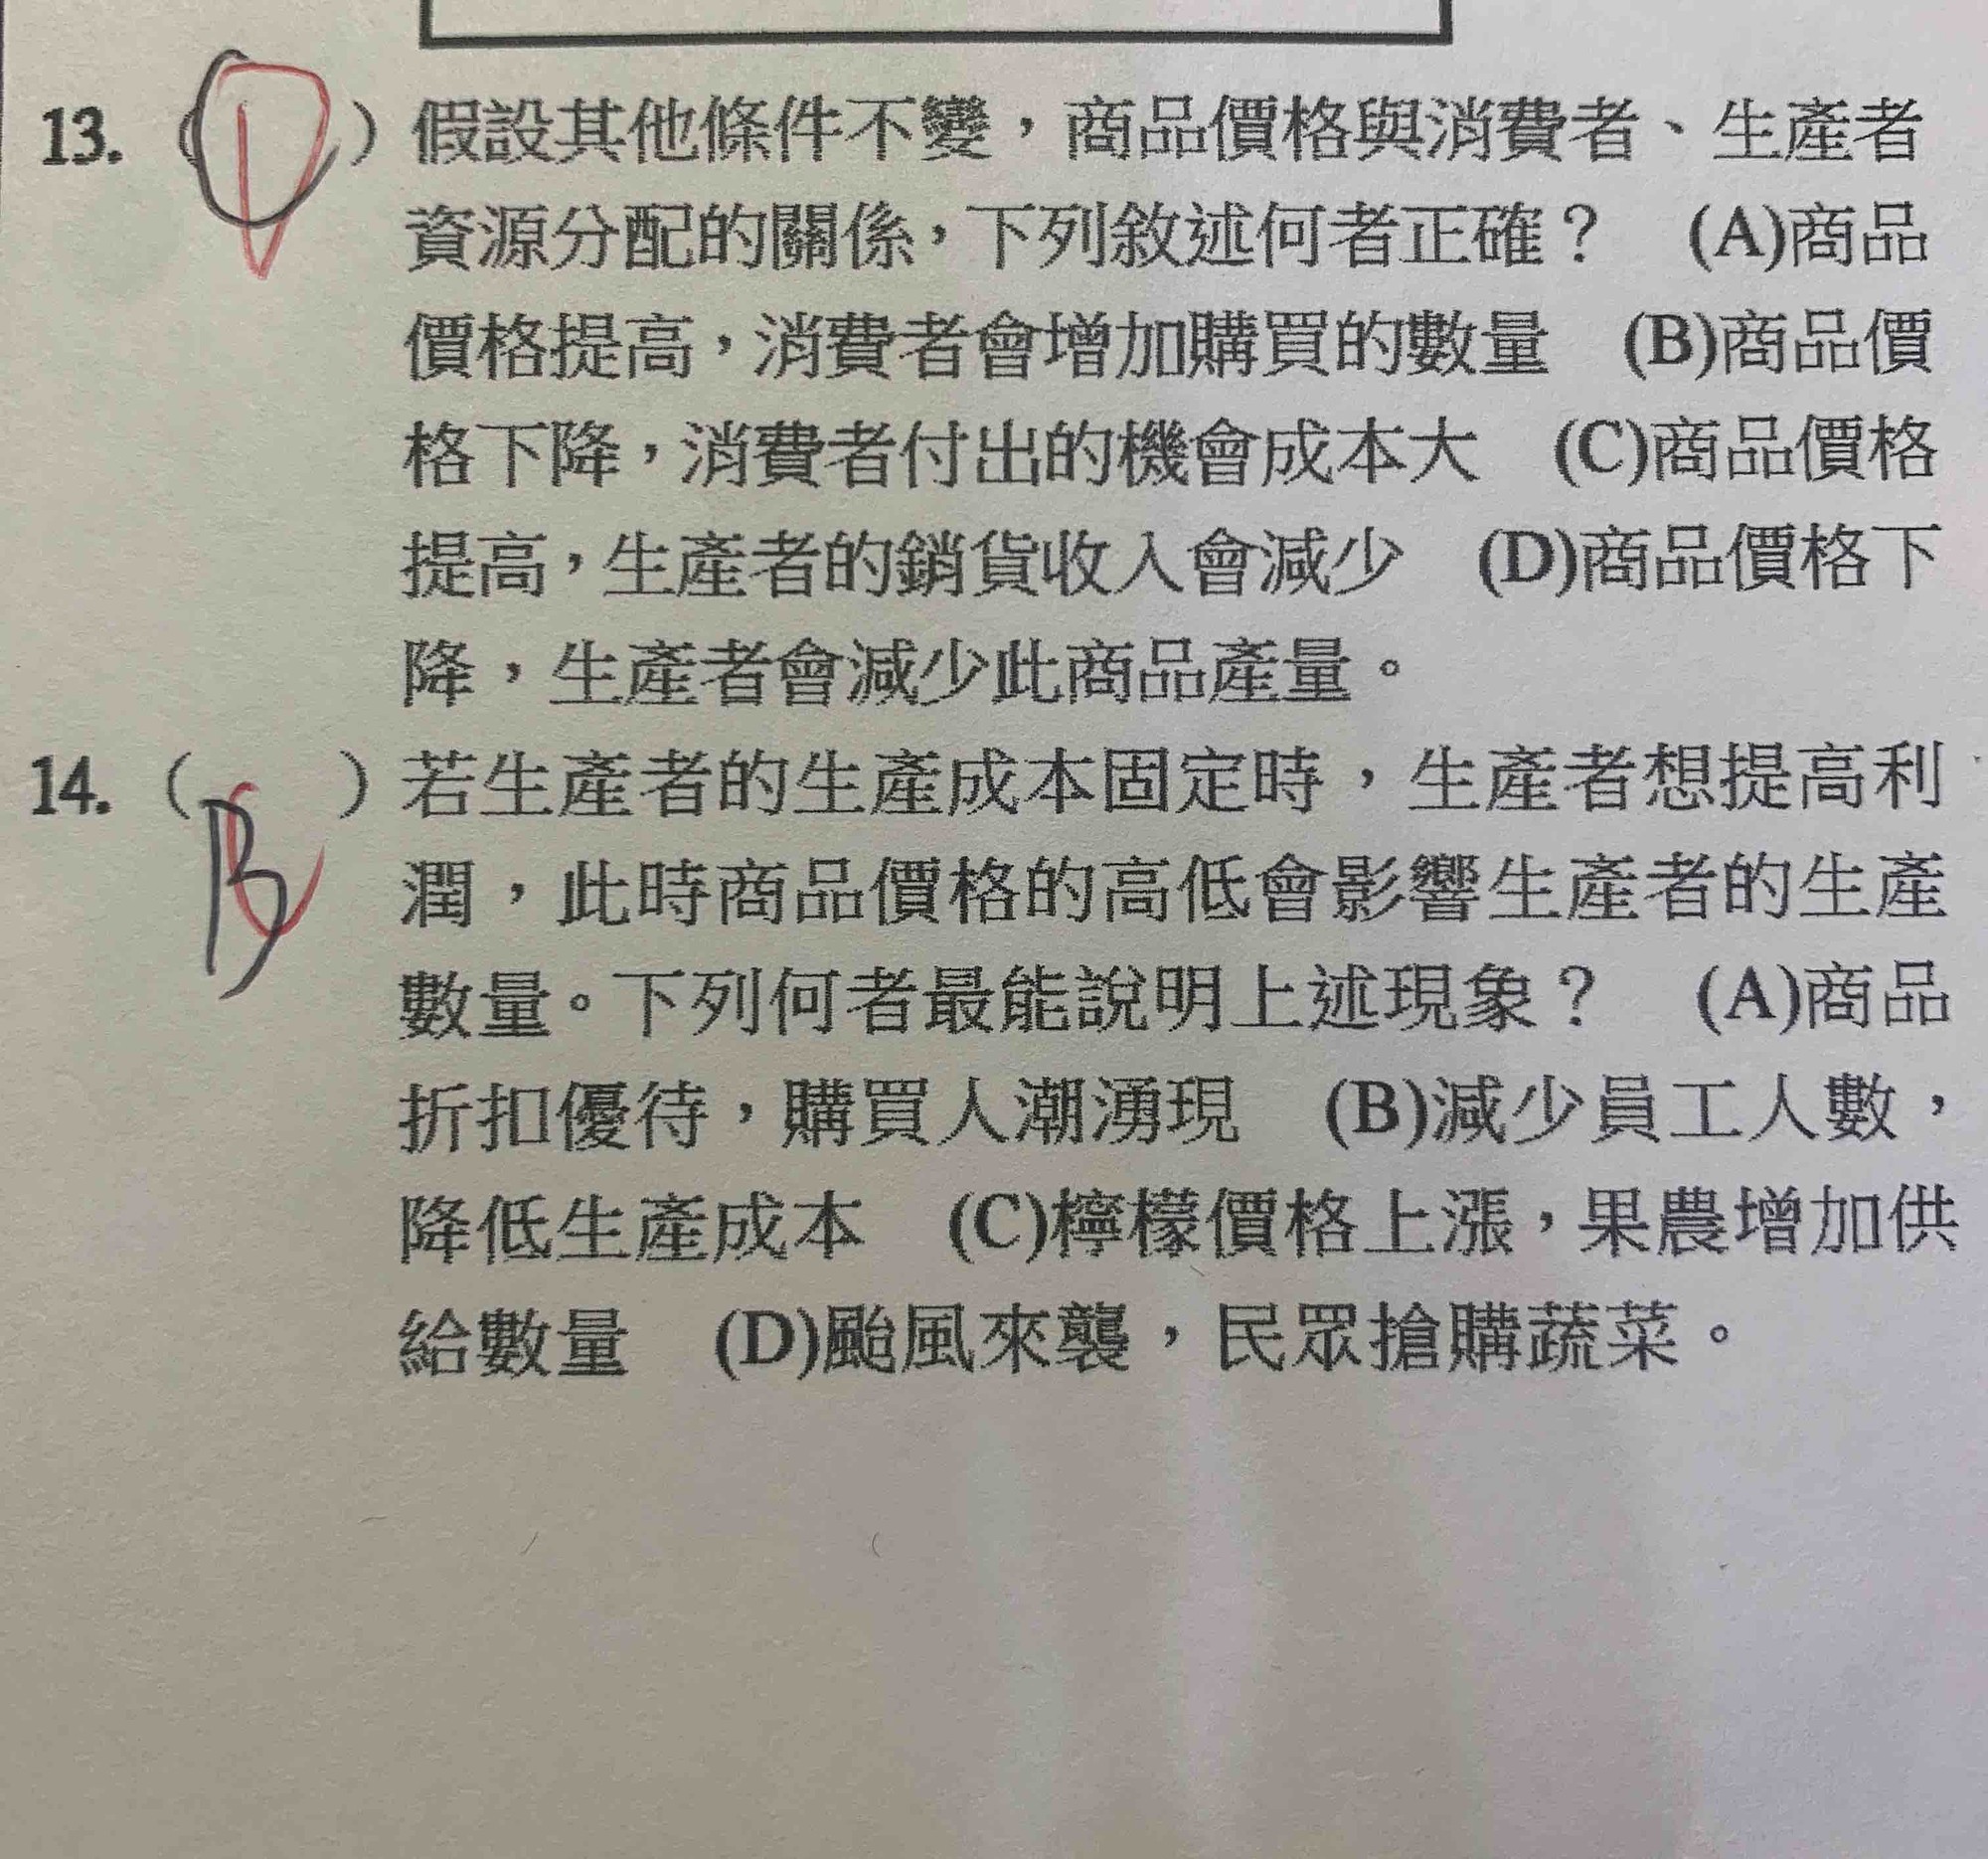 13.（D）假設其他條件不變，商品價格與消費者、生產者
資源分配的關係，下列敘述何者正確？ (A)商品
價格提高，消費者會增加購買的數量 (B)商品價
格下降，消費者付出的機會成本大 (C)商品價格
提高，生產者的銷貨收入會減少 (D)商品價格下
降，生產者會減少此商品產量。
14.（B C）若生產者的生產成本固定時，生產者想提高利
潤，此時商品價格的高低會影響生產者的生產
數量。下列何者最能說明上述現象？ (A)商品
折扣優待，購買人潮湧現 (B)減少員工人數，
降低生產成本 (C)檸檬價格上漲，果農增加供
給數量 (D)颱風來襲，民眾搶購蔬菜。